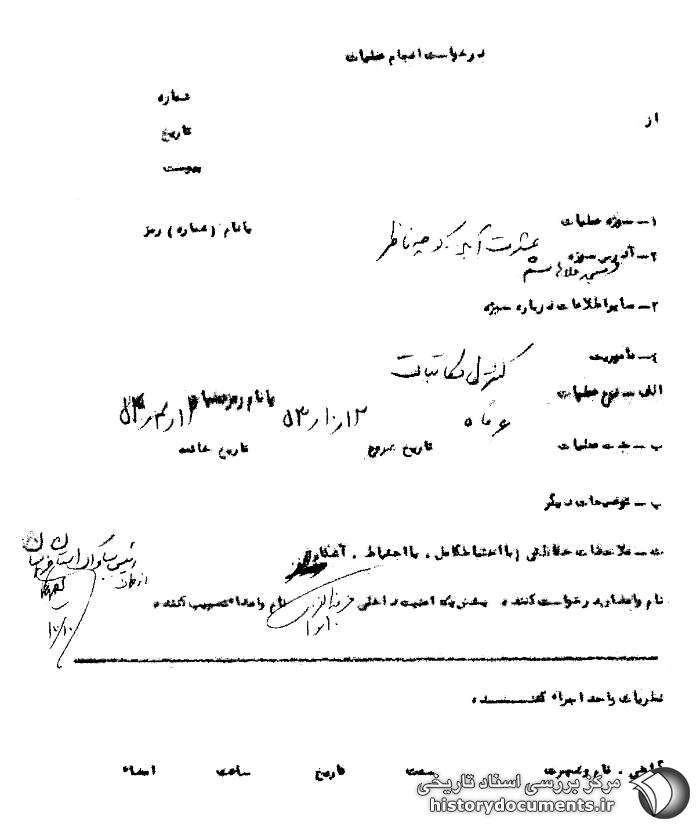 درخواست انجام عملیات
شماره
از
تاریخ
پیوست
۱ـ سوژه عملیات با نام (شماره) رمز
۲ـ آدرس سوژه عشرت آباد کوچه ناظر
۳ـ سایر اطلاعات درباره سوژه
۴ـ مأموریت کنترل مکاتبات
الف ـ نوع عملیات با نام رمز عملیات
۶ ماه ۱۲ر۱۰ر۵۳
ب ـ مدت عملیات تاریخ شروع تاریخ خاتمه
پ ـ توضیحات دیگر
ت ـ ملاحظات حفاظتی (با احتیاط کامل ، با احتیاط ، آشکار)
رئیس ساواک استان
نام و امضاء درخواست کننده بخش یک امنیت داخلی نام و امضاء تصویب کننده
۱۰/۱۰
نظریات واحد اجراء کننده
گواهی ، نام و شهرت سمت تاریخ ساعت امضاء
مرکز بررسی اسناد تاریخی
historydocuments.ir